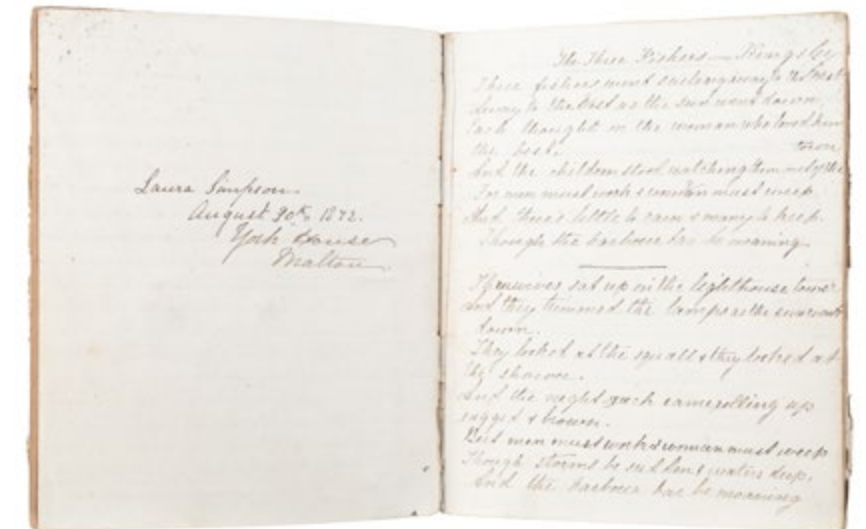 Laura Simpson.
August 30th, 1872.
York House
Malton.
The Three Fishers — Kingsley
Three fishers went sailing away to the West
Away to the West as the sun went down,
Each thought on the woman who loved him
the best,
town
And the children stood watching them out of the
For men must work & women must weep
And there's little to earn & many to keep.
Though the harbour bar be moaning.
Three wives sat up in the lighthouse tower
And they trimmed the lamps as the sun went
down.
They looked at the squall & they looked at
the shower.
And the night rack came rolling up
ragged & brown.
But men must work & women must weep
Though storms be sudden & waters deep,
And the harbour bar be moaning